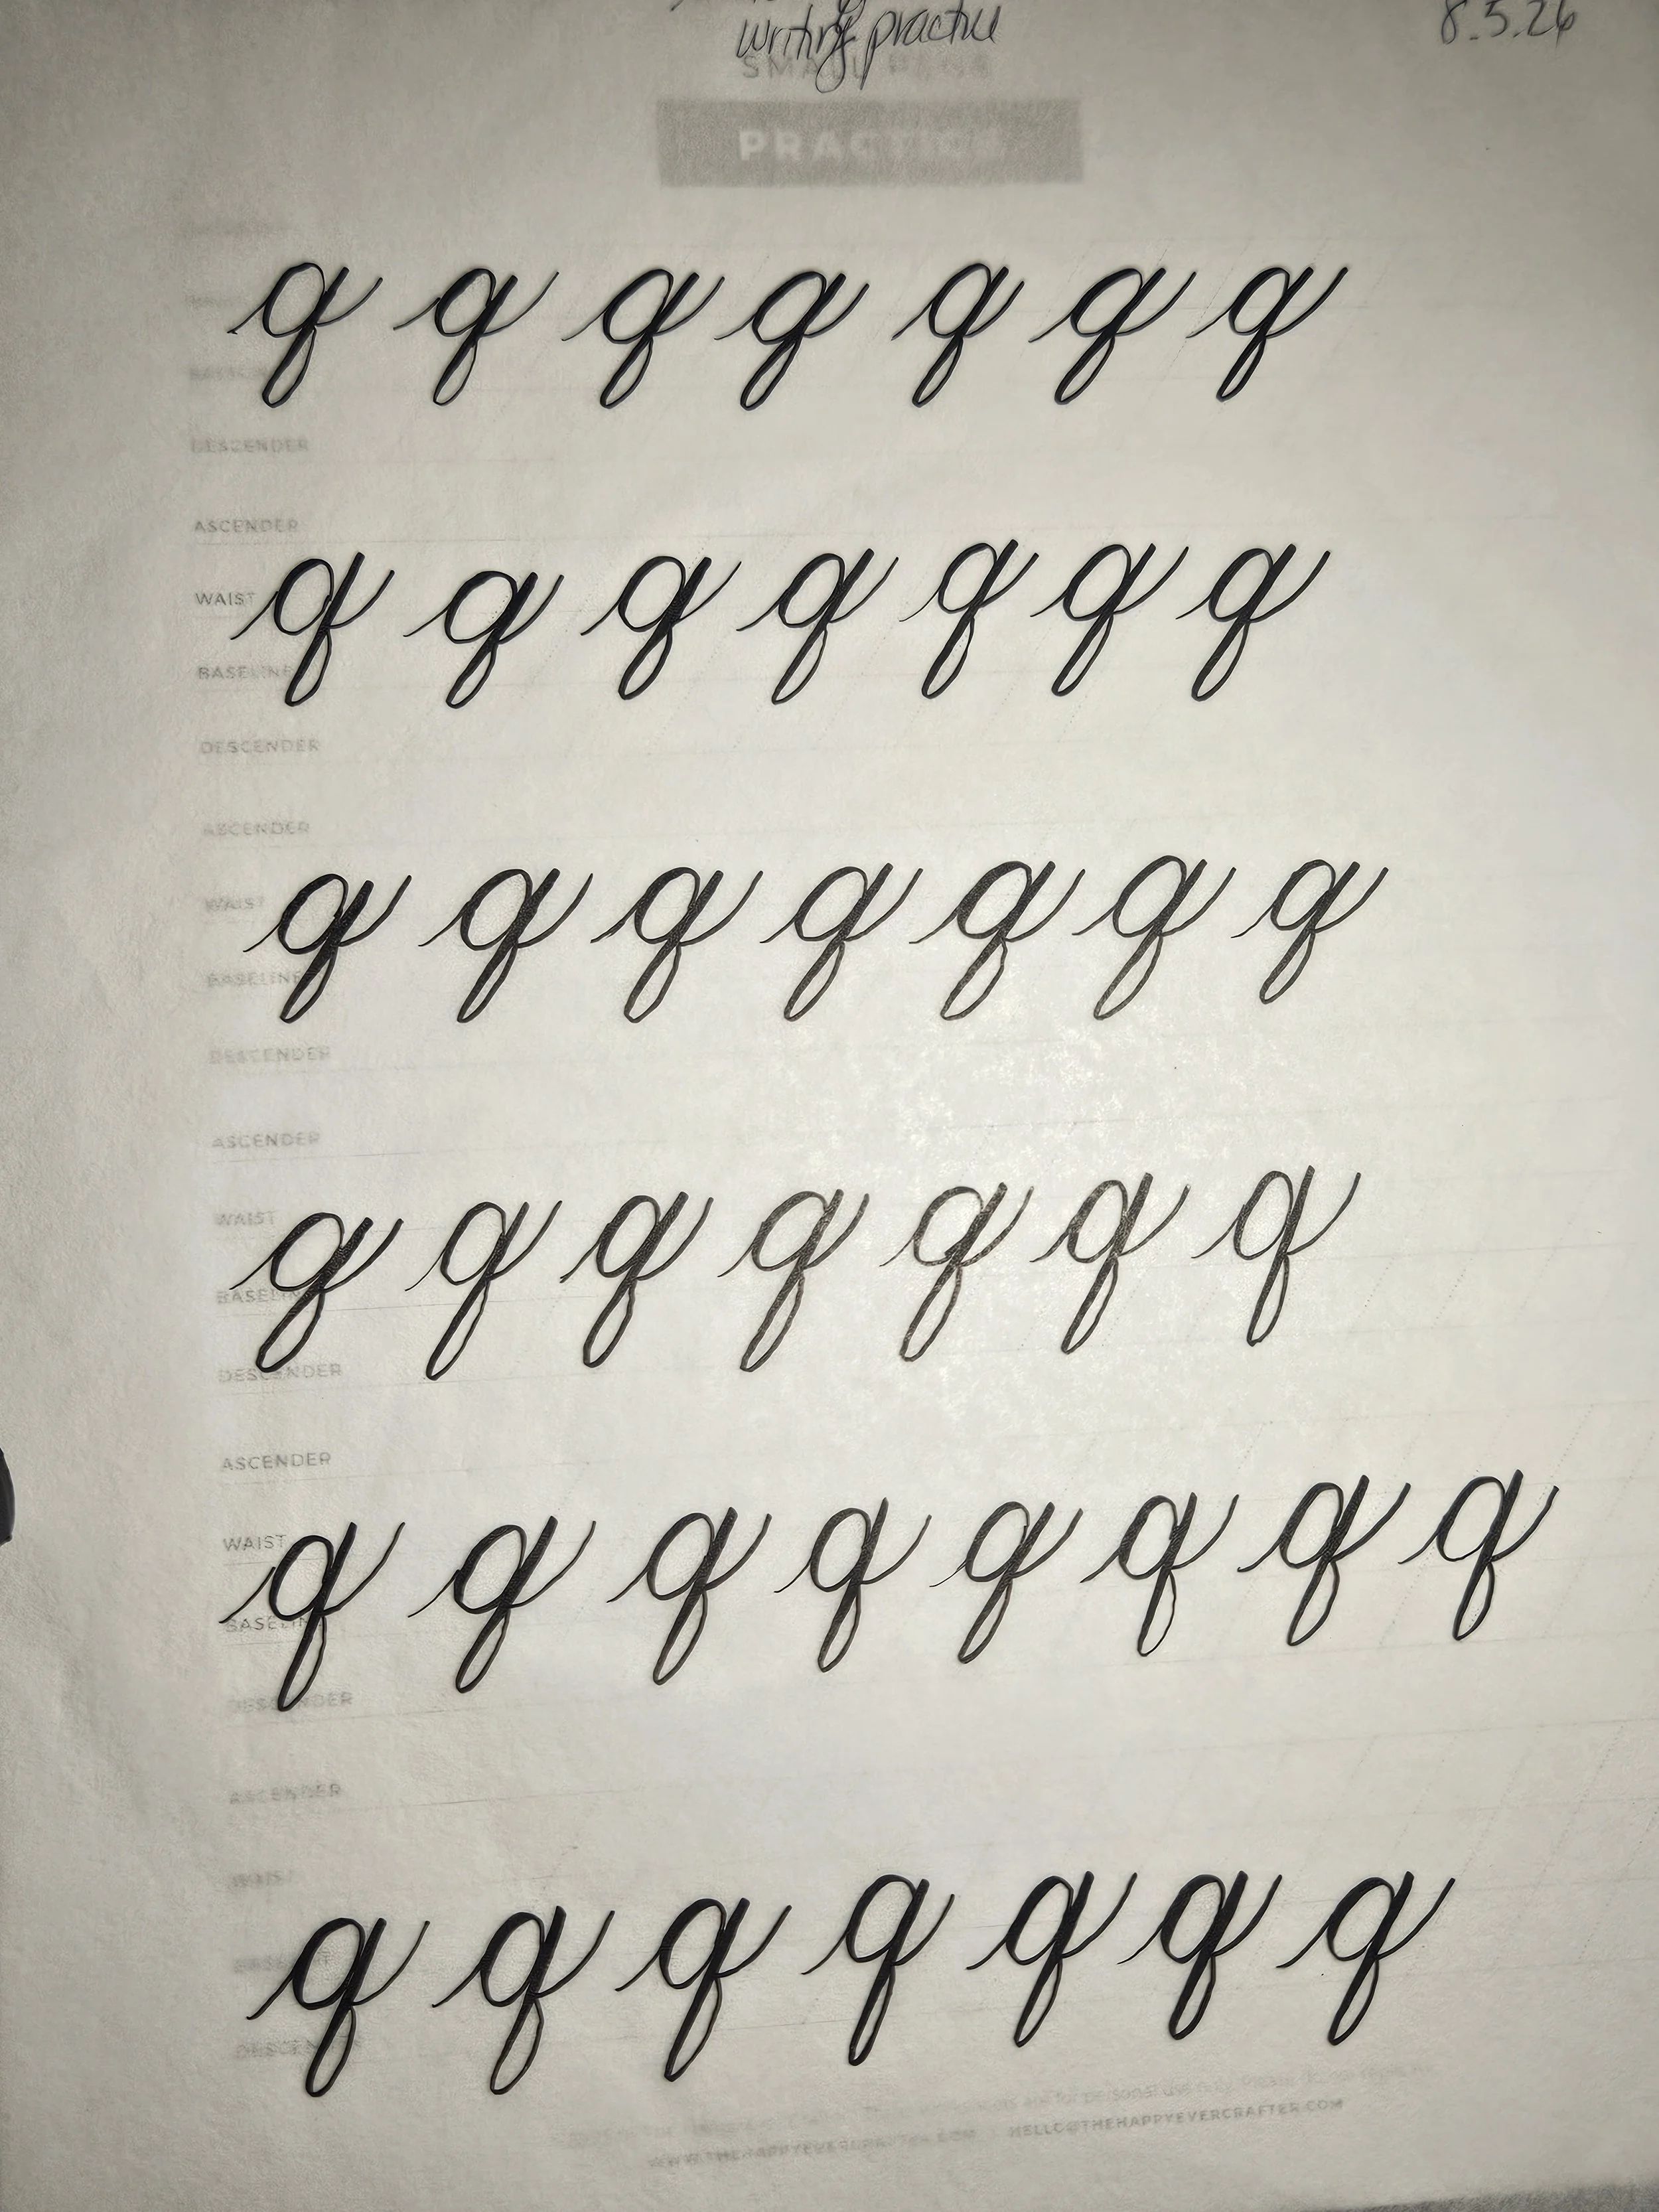 writing practice
8.5.26
SMALL PENS
PRACTICE
q q q q q q q
DESCENDER
ASCENDER
WAIST
q q q q q q q
BASELINE
DESCENDER
ASCENDER
WAIST
q q q q q q q
BASELINE
DESCENDER
ASCENDER
WAIST
q q q q q q q
BASELINE
DESCENDER
ASCENDER
WAIST
q q q q q q q q
BASELINE
DESCENDER
ASCENDER
WAIST
q q q q q q q
DESCENDER
WWW.THEHAPPYEVERCRAFTER.COM HELLO@THEHAPPYEVERCRAFTER.COM